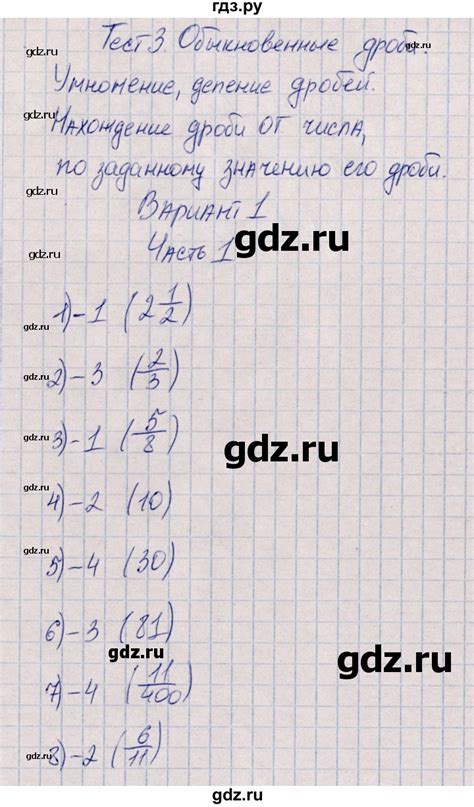 гдз.ру
Тест 3. Обыкновенные дроби.
gdz.ru
Умножение, деление дробей.
gdz.ru
Нахождение дроби от числа,
gdz.ru
по заданному значению его дроби.
gdz.ru
Вариант 1
gdz.ru
Часть 1
gdz.ru
1) - 1 (2 1/2)
gdz.ru
2) - 3 (2/3)
gdz.ru
3) - 1 (5/8)
gdz.ru
gdz.ru
4) - 2 (10)
gdz.ru
5) - 4 (30)
gdz.ru
6) - 3 (81)
gdz.ru
gdz.ru
gdz.ru
7) - 4 (11/400)
gdz.ru
8) - 2 (6/11)
gdz.ru
gdz.ru